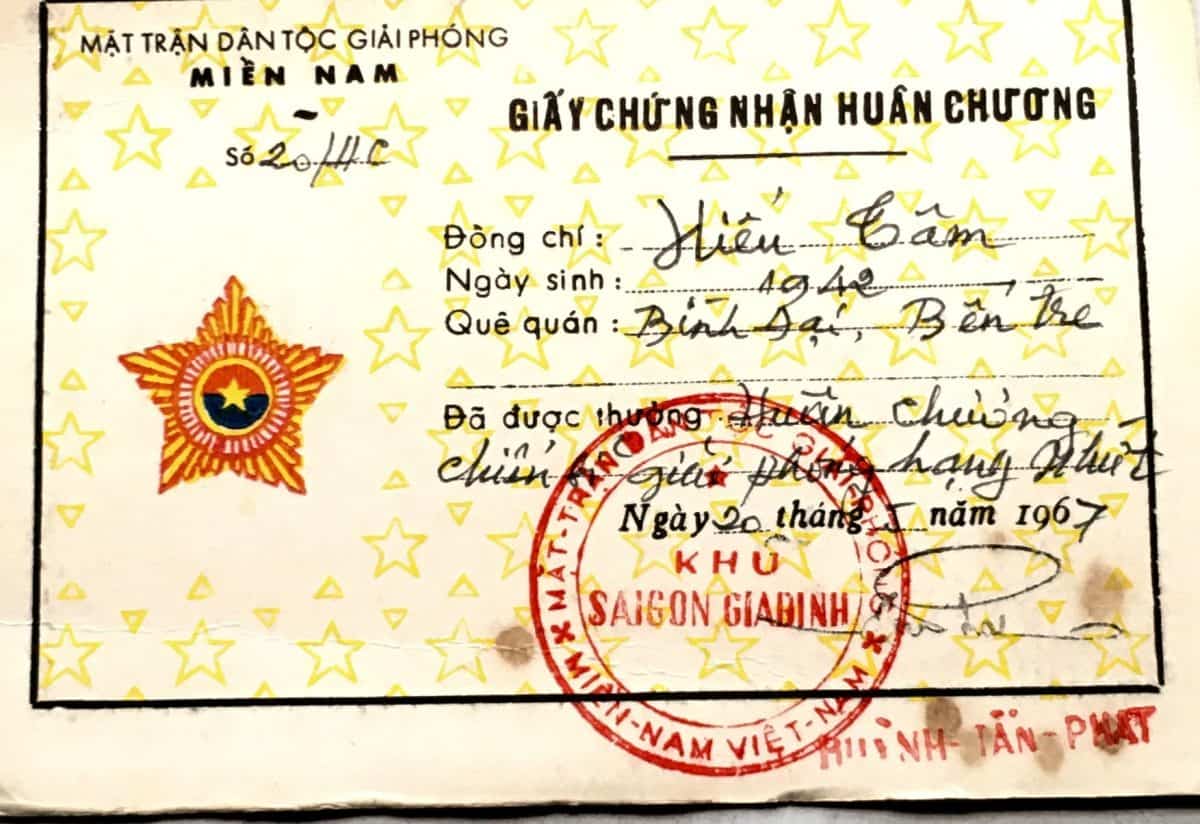 MẶT TRẬN DÂN TỘC GIẢI PHÓNG
MIỀN NAM
Số 20/HC
GIẤY CHỨNG NHẬN HUÂN CHƯƠNG
Đồng chí : Hiếu Tâm
Ngày sinh : 1942
Quê quán : Bình Đại, Bến Tre
Đã được thưởng Huân chương
chiến sĩ giải phóng hạng Nhứt
Ngày 20 tháng 5 năm 1967
MẶT-TRẬN DÂN TỘC GIẢI PHÓNG
KHU
SAIGON GIADINH
MIỀN-NAM VIỆT-NAM
HUỲNH-TẤN-PHÁT